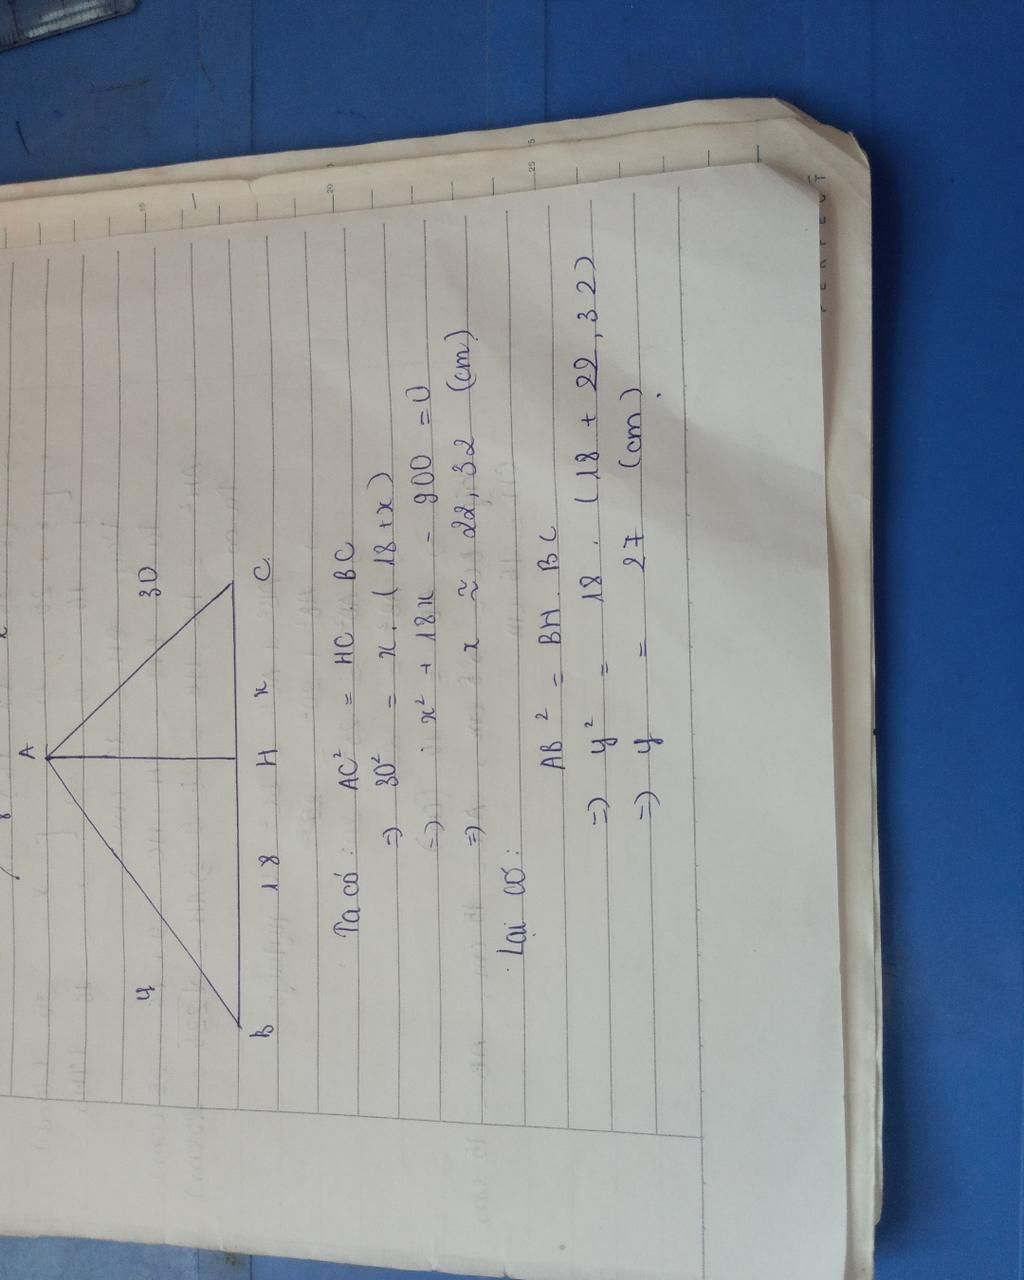 A
y
30
B
18
H
x
C
Ta có : AC² = HC . BC
=) 30² = x . ( 18 + x )
=) x² + 18x - 900 = 0
=) x ≈ 22,32 (cm)
Lại có :
AB² = BH . BC
=) y² = 18 . ( 18 + 22,32 )
=) y = 27 (cm)
15
20
25
PERFECT